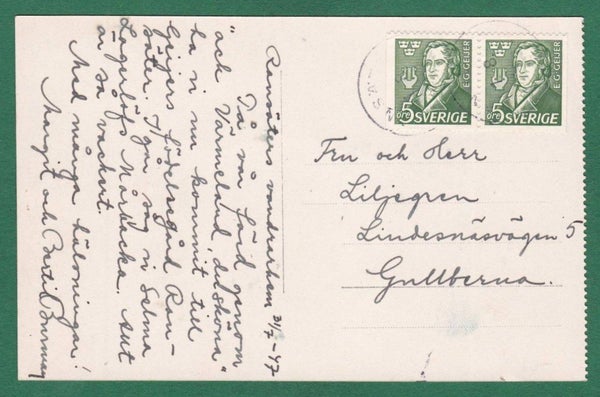 Ransäters vandrarhem 31/7 -47
På vår färd genom
"ack Värmeland, du sköna"
ha vi nu kommit till
Geijers födelsegård Ran-
säter. I går såg vi Selma
Lagerlöfs Mårbacka. Allt
är så vackert.
Med många hälsningar!
Margit och Bertil
E·G·GEIJER
5 ÖRE
SVERIGE
E·G·GEIJER
5 ÖRE
SVERIGE
Fru och Herr
Liljegren
Lindesnäsvägen 5
Gullberna.